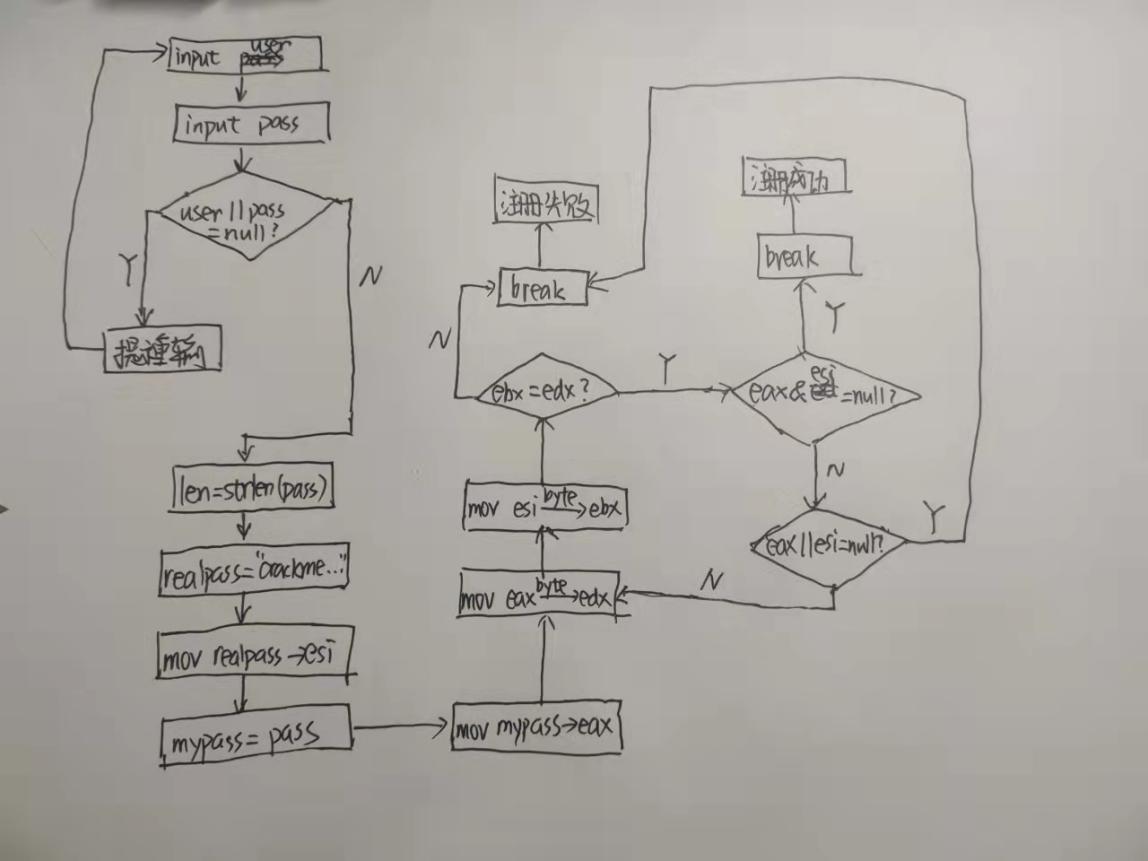 input user
input pass
user||pass
=null?
Y
N
len=strlen(pass)
realpass="crackme..."
mov realpass→esi
mypass=pass
mov mypass→eax
mov eax byte→edx
mov esi byte→ebx
ebx=edx?
N
break
注册失败
Y
eax&esi=null?
Y
break
注册成功
N
eax||esi=null?
Y
N